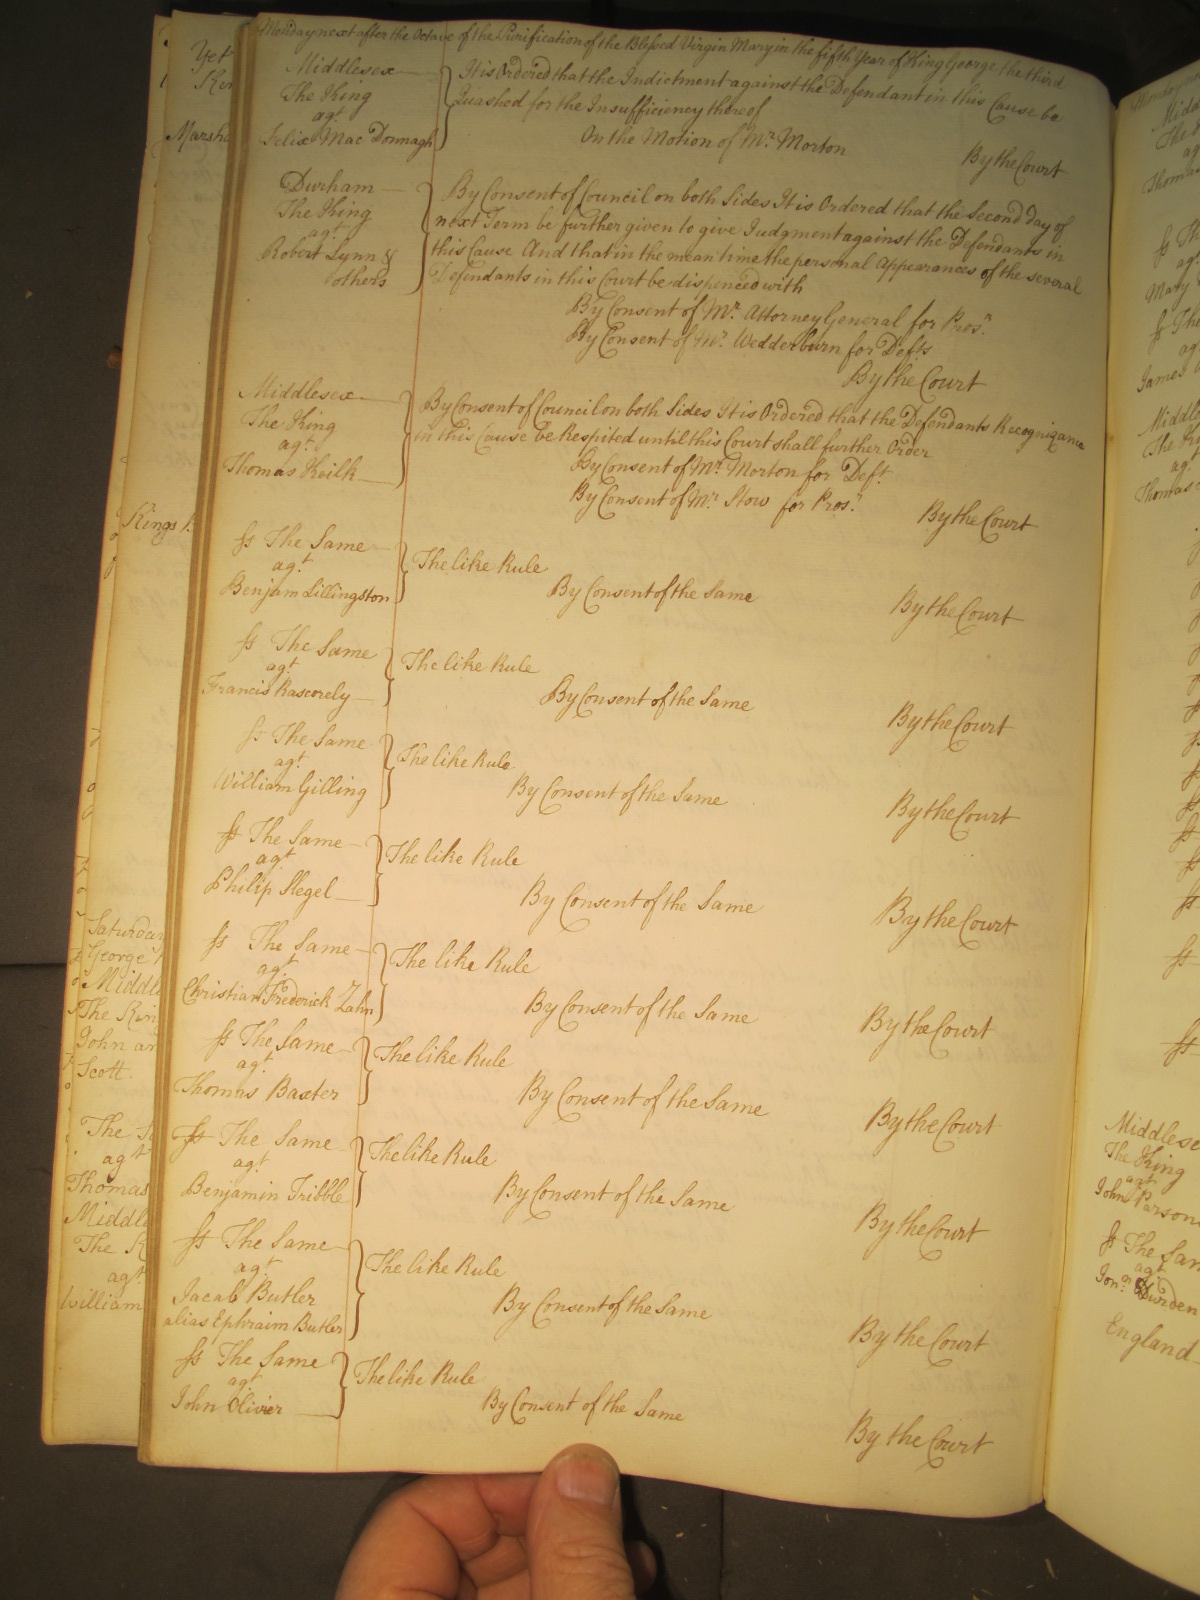 Monday next after the Octave of the Purification of the Blessed Virgin Mary in the fifth Year of King George the third
Middlesex
The King
agt
Felix Mac Donnagh
It is Ordered that the Indictment against the Defendant in this Cause be
Quashed for the Insufficiency thereof
On the Motion of Mr. Morton
By the Court
Durham
The King
agt
Robert Lynn &
others
By Consent of Council on both Sides It is Ordered that the Second day of
next Term be further given to give Judgment against the Defendants in
this Cause And that in the mean time the personal Appearances of the several
Defendants in this Court be dispenced with
By Consent of Mr. Attorney General for Prosr.
By Consent of Mr. Wedderburn for Defts
By the Court
Middlesex
The King
agt
Thomas Heilk
By Consent of Council on both Sides It is Ordered that the Defendants Recognizance
in this Cause be Respited until this Court shall further Order
By Consent of Mr. Morton for Deft.
By Consent of Mr. Stow for Prosr.
By the Court
ss The Same
agt
Benjam Lillingston
The like Rule
By Consent of the Same
By the Court
ss The Same
agt
Francis Rascorely
The like Rule
By Consent of the Same
By the Court
ss The Same
agt
William Gilling
The like Rule
By Consent of the Same
By the Court
ss The Same
agt
Philip Slegel
The like Rule
By Consent of the Same
By the Court
ss The Same
agt
Christian Frederick Zahn
The like Rule
By Consent of the Same
By the Court
ss The Same
agt
Thomas Baxter
The like Rule
By Consent of the Same
By the Court
ss The Same
agt
Benjamin Tribble
The like Rule
By Consent of the Same
By the Court
ss The Same
agt
Jacab Butler
alias Ephraim Butler
The like Rule
By Consent of the Same
By the Court
ss The Same
agt
John Olivier
The like Rule
By Consent of the Same
By the Court
Yet
Kings
Saturday
George
The
agt
Thomas
The
agt
William
John
Scott.
Mary
James
The
agt
Thomas
Middlese
The King
agt
John Parson
ss The Sam
agt
Jonn. Burden
England